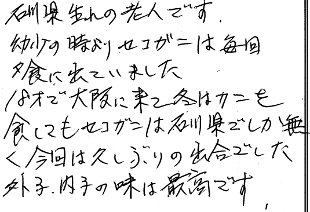 石川県生れの老人です.
幼少の時よりセコガニは毎回
夕食に出ていました
18才で大阪に来て冬はカニを
食してもセコガニは石川県でしか無
く今回は久しぶりの出合でした
外子.内子の味は最高です